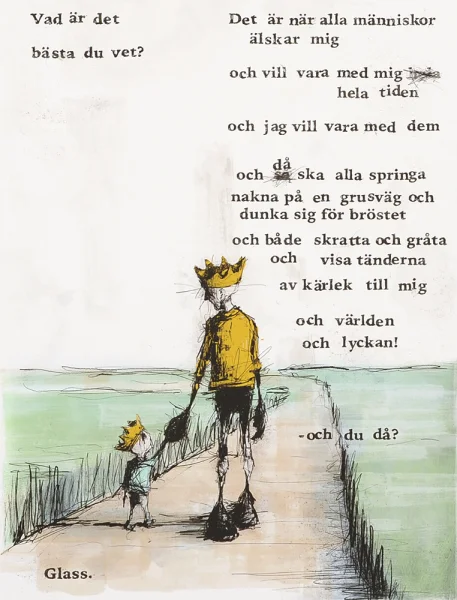 Vad är det
bästa du vet?
Det är när alla människor
älskar mig
och vill vara med mig
hela tiden
och jag vill vara med dem
då
och så ska alla springa
nakna på en grusväg och
dunka sig för bröstet
och både skratta och gråta
och visa tänderna
av kärlek till mig
och världen
och lyckan!
-och du då?
Glass.